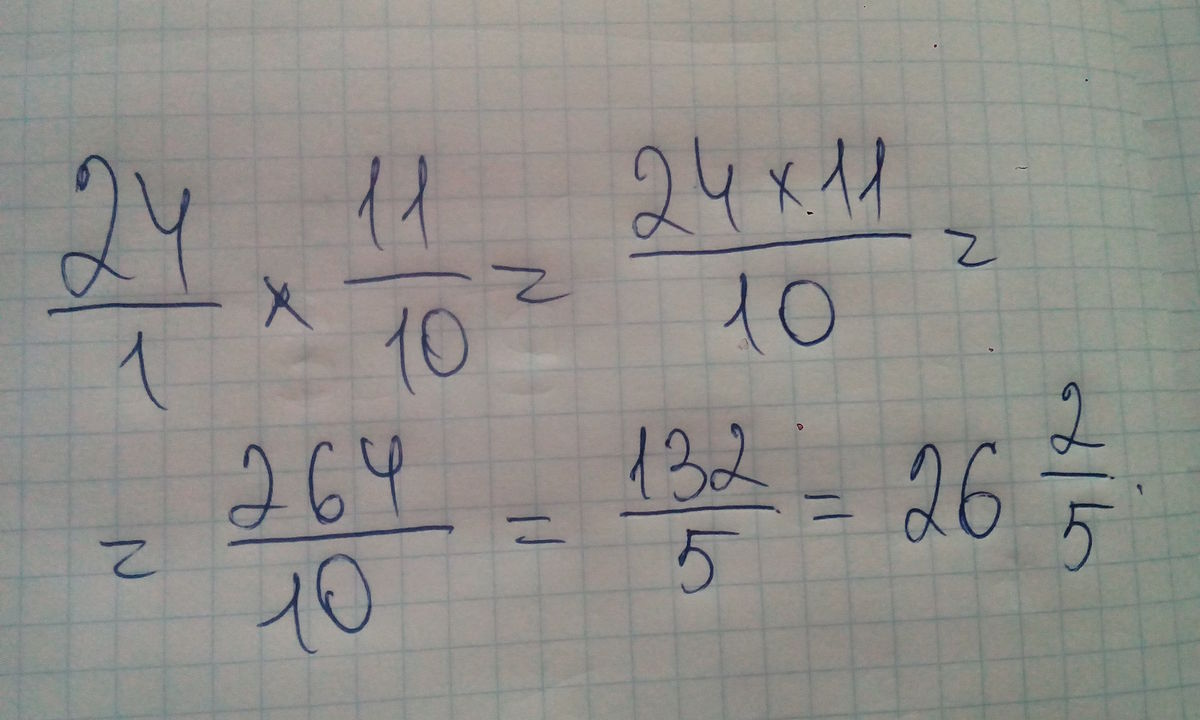 24/1 × 11/10 = 24 × 11/10 =
= 264/10 = 132/5 = 26 2/5.